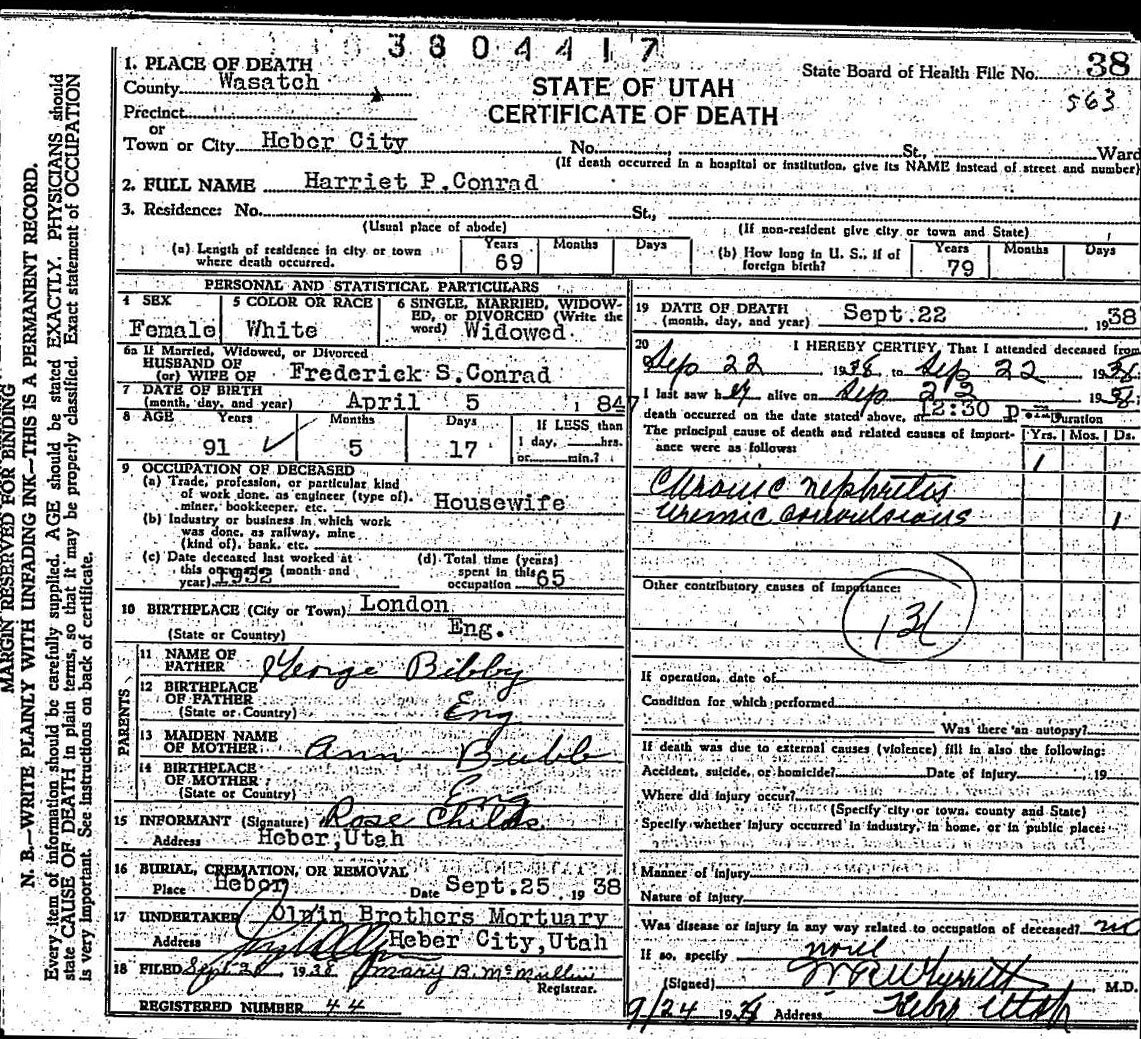 3804417
1. PLACE OF DEATH
County Wasatch
Precinct
or
Town or City Heber City
STATE OF UTAH
CERTIFICATE OF DEATH
State Board of Health File No. 38
563
No. St., Ward
(If death occurred in a hospital or institution, give its NAME instead of street and number)
2. FULL NAME Harriet P. Conrad
3. Residence: No. St.,
(Usual place of abode) (If non-resident give city or town and State)
(a) Length of residence in city or town where death occurred. Years 69 Months Days
(b) How long in U. S., if of foreign birth? Years 79 Months Days
PERSONAL AND STATISTICAL PARTICULARS
4 SEX Female
5 COLOR OR RACE White
6 SINGLE, MARRIED, WIDOWED, or DIVORCED (Write the word) Widowed
6a If Married, Widowed, or Divorced
HUSBAND OF
(or) WIFE OF Frederick S. Conrad
7 DATE OF BIRTH
(month, day, and year) April 5 1847
8 AGE Years 91 Months 5 Days 17
If LESS than
1 day, hrs.
or min.?
9 OCCUPATION OF DECEASED
(a) Trade, profession, or particular kind
of work done, as engineer (type of),
miner, bookkeeper, etc. Housewife
(b) Industry or business in which work
was done, as railway, mine
(kind of), bank, etc.
(c) Date deceased last worked at
this occupation (month and
year) 1932
(d) Total time (years)
spent in this
occupation 65
10 BIRTHPLACE (City or Town) London
(State or Country) Eng.
PARENTS
11 NAME OF
FATHER George Bibby
12 BIRTHPLACE
OF FATHER
(State or Country) Eng
13 MAIDEN NAME
OF MOTHER Ann Bubb
14 BIRTHPLACE
OF MOTHER
(State or Country) Eng
15 INFORMANT (Signature) Rose Childs
Address Heber, Utah
16 BURIAL, CREMATION, OR REMOVAL
Place Heber Date Sept. 25 1938
17 UNDERTAKER Olpin Brothers Mortuary
Address Heber City, Utah
18 FILED Sept 1938 Mary B. McMullin
Registrar.
REGISTERED NUMBER 44
19 DATE OF DEATH
(month, day, and year) Sept. 22 1938
20 I HEREBY CERTIFY, That I attended deceased from
Sep 22 1938 to Sep 22 1938
I last saw her alive on Sep 1938;
death occurred on the date stated above, at 12:30 p m.
The principal cause of death and related causes of importance were as follows:
Duration
Yrs. Mos. Ds.
1
Chronic nephritis
uremic convulsions 1
Other contributory causes of importance:
131
If operation, date of
Condition for which performed
Was there an autopsy?
If death was due to external causes (violence) fill in also the following:
Accident, suicide, or homicide? Date of injury , 19
Where did injury occur?
(Specify city or town, county and State)
Specify whether injury occurred in industry, in home, or in public place:
Manner of injury
Nature of injury
Was disease or injury in any way related to occupation of deceased? no
If so, specify
(Signed) M.D.
9/24 1938 Address Heber Utah
MARGIN RESERVED FOR BINDING
N. B.—WRITE PLAINLY WITH UNFADING INK—THIS IS A PERMANENT RECORD.
Every item of information should be carefully supplied. AGE should be stated EXACTLY. PHYSICIANS should
state CAUSE OF DEATH in plain terms, so that it may be properly classified. Exact statement of OCCUPATION
is very important. See instructions on back of certificate.